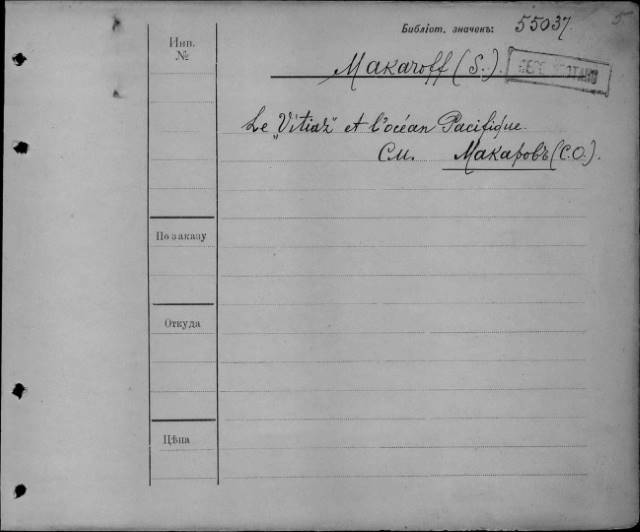 Библіот. значекъ: 55037. 5
Инв.
№
Makaroff (S.).
Le „Vitiaz" et l'océan Pacifique.
См. Макаровъ (С.О.).
По заказу
Откуда
Цѣна